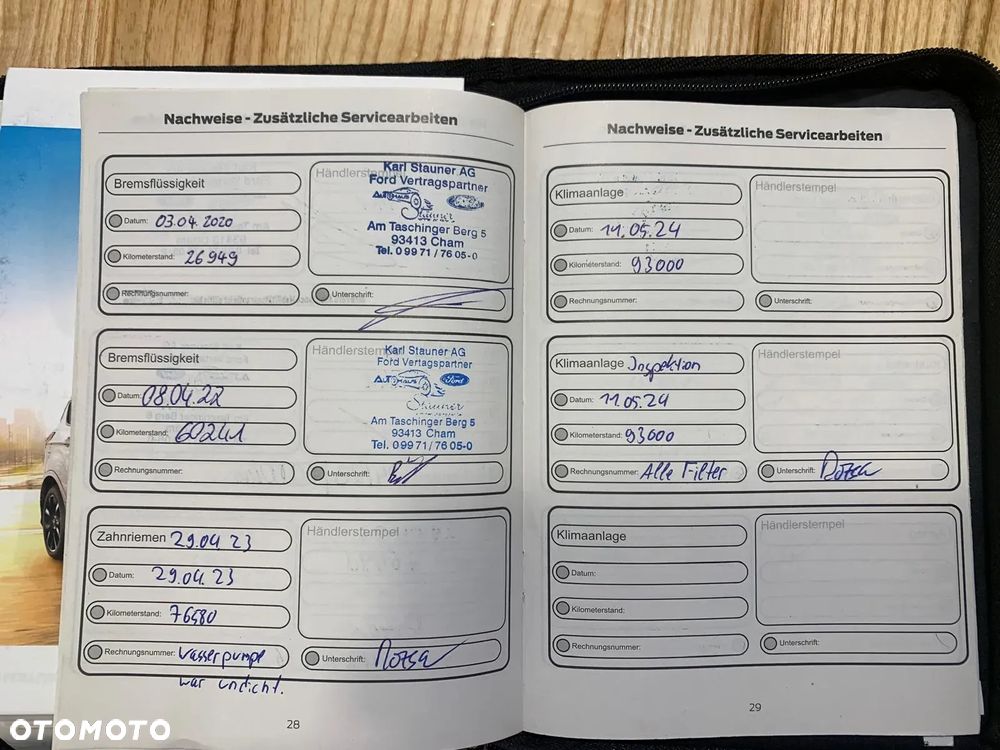 Nachweise - Zusätzliche Servicearbeiten
Bremsflüssigkeit
Datum: 03.04.2020
Kilometerstand: 26949
Rechnungsnummer:
Händlerstempel
Karl Stauner AG
Ford Vertragspartner
AUTOHAUS
Stauner
Ford
Am Taschinger Berg 5
93413 Cham
Tel. 0 99 71 / 76 05-0
Unterschrift:
Bremsflüssigkeit
Datum: 08.04.22
Kilometerstand: 60241
Rechnungsnummer:
Händlerstempel
Karl Stauner AG
Ford Vertragspartner
AUTOHAUS
Stauner
Ford
Am Taschinger Berg 5
93413 Cham
Tel. 0 99 71 / 76 05-0
Unterschrift:
Zahnriemen 29.04.23
Datum: 29.04.23
Kilometerstand: 76580
Rechnungsnummer: Wasserpumpe
war undicht.
Händlerstempel
Unterschrift:
28
Nachweise - Zusätzliche Servicearbeiten
Klimaanlage
Datum: 11.05.24
Kilometerstand: 93000
Rechnungsnummer:
Händlerstempel
Unterschrift:
Klimaanlage Inspektion
Datum: 11.05.24
Kilometerstand: 93000
Rechnungsnummer: Alle Filter
Händlerstempel
Unterschrift:
Klimaanlage
Datum:
Kilometerstand:
Rechnungsnummer:
Händlerstempel
Unterschrift:
29
OTOMOTO